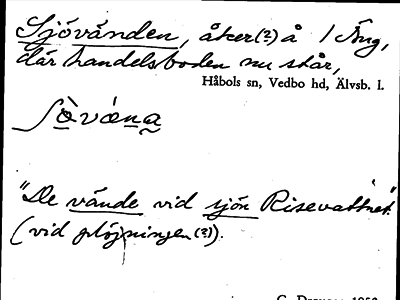 Sjövänden, åker(?) å 1 Äng,
där handelsboden nu står,
Håbols sn, Vedbo hd, Älvsb. l.
"De vände vid sjön Risevattnet"
(vid plöjningen(?)).